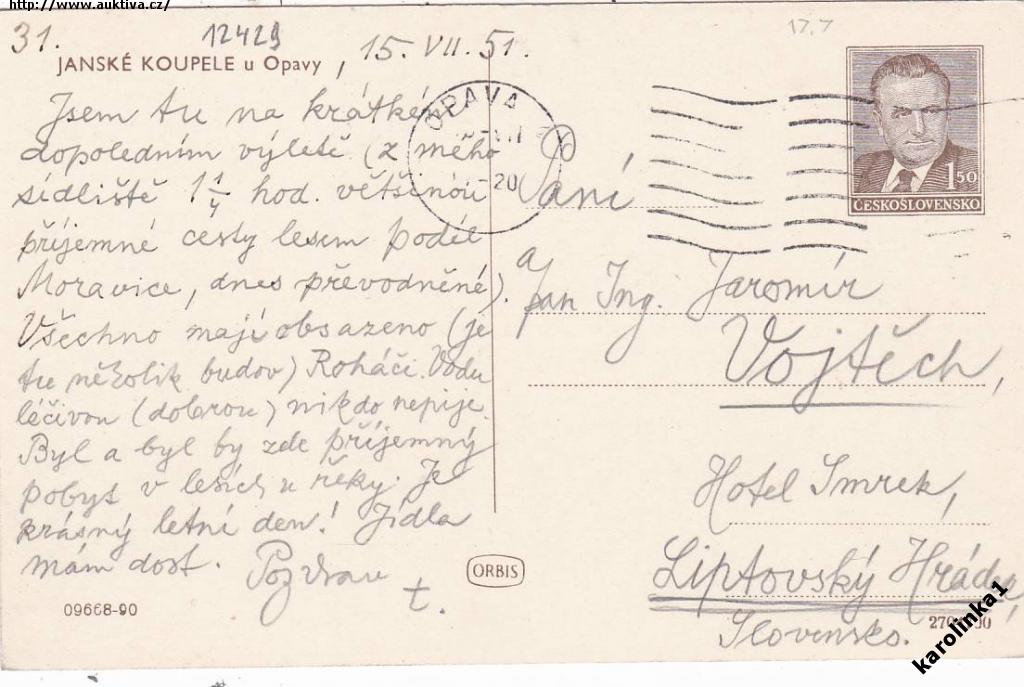 http://www.auktiva.cz/
31.
12429
17.7
JANSKÉ KOUPELE u Opavy, 15. VII. 51.
Jsem tu na krátkém
dopoledním výletě (z mého
sídliště 1 1/4 hod. většinou
příjemné cesty lesem podél
Moravice, dnes převodněné).
Všechno mají obsazeno (je
tu několik budov) Roháči. Vodu
léčivou (dobrou) nikdo nepije.
Byl a byl by zde příjemný
pobyt v lesích u řeky. Je
krásný letní den! Jídla
mám dost. Pozdrav
t.
09668-90
ORBIS
OPAVA
VII
-20
1 50
ČESKOSLOVENSKO
Paní
a
pan Ing. Jaromír
Vojtěch,
Hotel Smrek,
Liptovský Hrádek,
Slovensko.
karolinka1